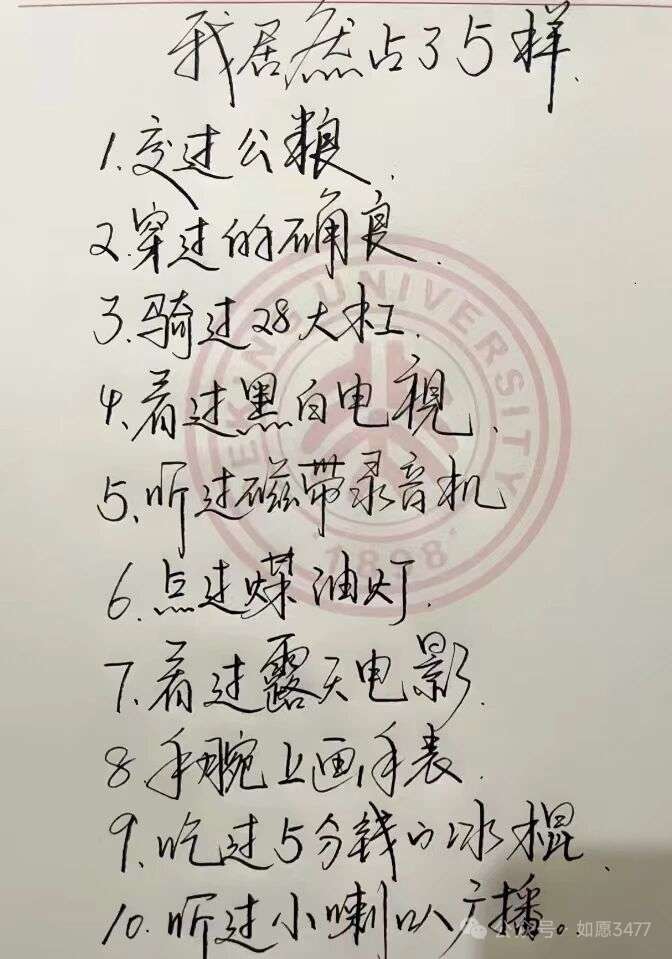 我居然占了5样.
1.交过公粮.
2.穿过的确良.
3.骑过28大杠.
4.看过黑白电視.
5.听过磁带录音机
6.点过煤油灯.
7.看过露天电影.
8.手腕上画手表.
9.吃过5分钱的冰棍.
10.听过小喇叭广播。
EKING UNIVERSITY
1898
公众号·如愿3477